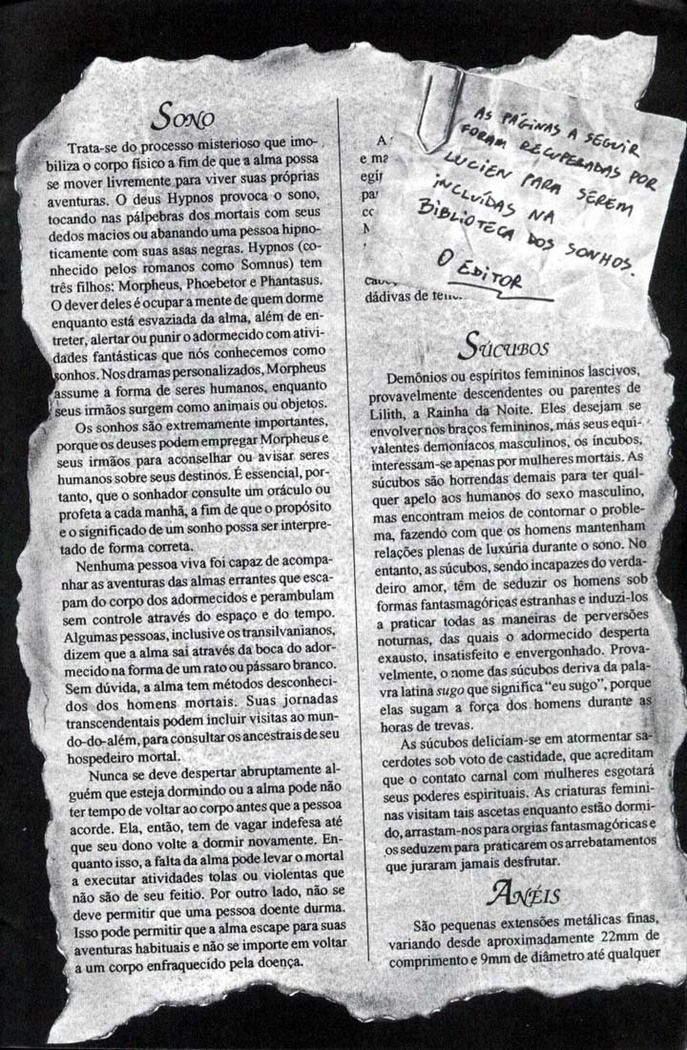 SONO
Trata-se do processo misterioso que imo-
biliza o corpo físico a fim de que a alma possa
se mover livremente para viver suas próprias
aventuras. O deus Hypnos provoca o sono,
tocando nas pálpebras dos mortais com seus
dedos macios ou abanando uma pessoa hipno-
ticamente com suas asas negras. Hypnos (co-
nhecido pelos romanos como Somnus) tem
três filhos: Morpheus, Phoebetor e Phantasus.
O dever deles é ocupar a mente de quem dorme
enquanto está esvaziada da alma, além de en-
treter, alertar ou punir o adormecido com ativi-
dades fantásticas que nós conhecemos como
sonhos. Nos dramas personalizados, Morpheus
assume a forma de seres humanos, enquanto
seus irmãos surgem como animais ou objetos.
Os sonhos são extremamente importantes,
porque os deuses podem empregar Morpheus e
seus irmãos para aconselhar ou avisar seres
humanos sobre seus destinos. É essencial, por-
tanto, que o sonhador consulte um oráculo ou
profeta a cada manhã, a fim de que o propósito
e o significado de um sonho possa ser interpre-
tado de forma correta.
Nenhuma pessoa viva foi capaz de acompa-
nhar as aventuras das almas errantes que esca-
pam do corpo dos adormecidos e perambulam
sem controle através do espaço e do tempo.
Algumas pessoas, inclusive os transilvanianos,
dizem que a alma sai através da boca do ador-
mecido na forma de um rato ou pássaro branco.
Sem dúvida, a alma tem métodos desconheci-
dos dos homens mortais. Suas jornadas
transcendentais podem incluir visitas ao mun-
do-do-além, para consultar os ancestrais de seu
hospedeiro mortal.
Nunca se deve despertar abruptamente al-
guém que esteja dormindo ou a alma pode não
ter tempo de voltar ao corpo antes que a pessoa
acorde. Ela, então, tem de vagar indefesa até
que seu dono volte a dormir novamente. En-
quanto isso, a falta da alma pode levar o mortal
a executar atividades tolas ou violentas que
não são de seu feitio. Por outro lado, não se
deve permitir que uma pessoa doente durma.
Isso pode permitir que a alma escape para suas
aventuras habituais e não se importe em voltar
a um corpo enfraquecido pela doença.
AS PÁGINAS A SEGUIR
FORAM RECUPERADAS POR
LUCIEN PARA SEREM
INCLUÍDAS NA
BIBLIOTECA DOS SONHOS.
O EDITOR
A
e
dádivas de
SÚCUBOS
Demônios ou espíritos femininos lascivos,
provavelmente descendentes ou parentes de
Lilith, a Rainha da Noite. Eles desejam se
envolver nos braços femininos, mas seus equi-
valentes demoníacos masculinos, os íncubos,
interessam-se apenas por mulheres mortais. As
súcubos são horrendas demais para ter qual-
quer apelo aos humanos do sexo masculino,
mas encontram meios de contornar o proble-
ma, fazendo com que os homens mantenham
relações plenas de luxúria durante o sono. No
entanto, as súcubos, sendo incapazes do verda-
deiro amor, têm de seduzir os homens sob
formas fantasmagóricas estranhas e induzi-los
a praticar todas as maneiras de perversões
noturnas, das quais o adormecido desperta
exausto, insatisfeito e envergonhado. Prova-
velmente, o nome das súcubos deriva da pala-
vra latina sugo que significa “eu sugo”, porque
elas sugam a força dos homens durante as
horas de trevas.
As súcubos deliciam-se em atormentar sa-
cerdotes sob voto de castidade, que acreditam
que o contato carnal com mulheres esgotará
seus poderes espirituais. As criaturas femini-
nas visitam tais ascetas enquanto estão dormi-
do, arrastam-nos para orgias fantasmagóricas e
os seduzem para praticarem os arrebatamentos
que juraram jamais desfrutar.
ANÉIS
São pequenas extensões metálicas finas,
variando desde aproximadamente 22mm de
comprimento e 9mm de diâmetro até qualquer